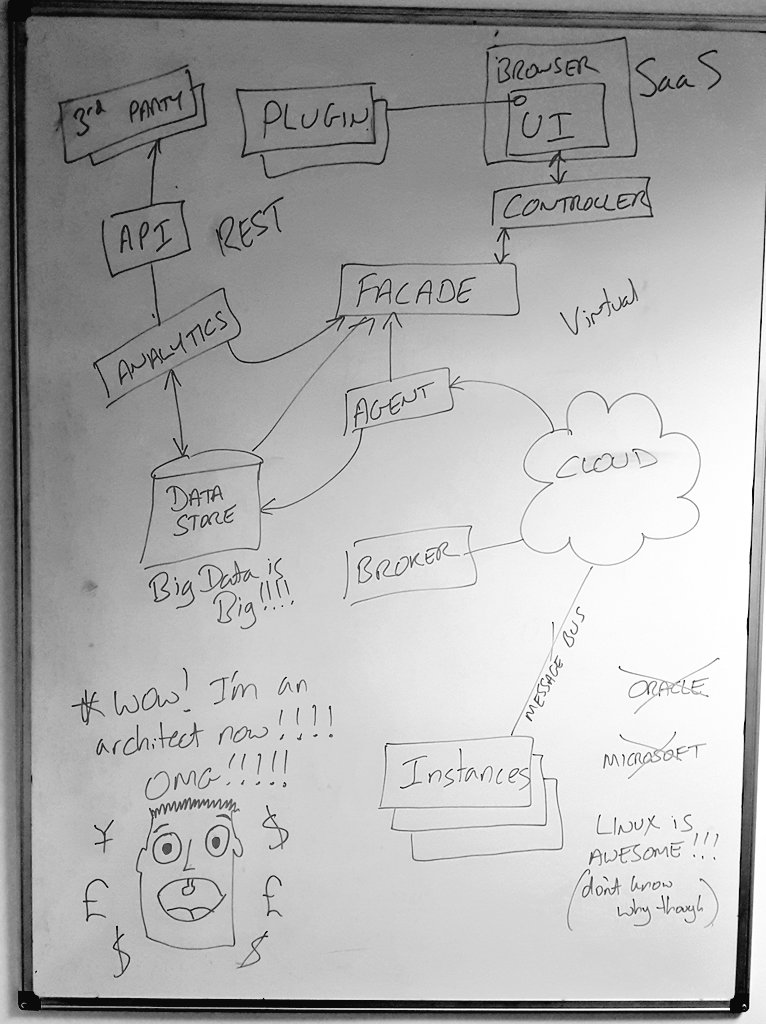 BROWSER
SaaS
3rd PARTY
PLUGIN
UI
CONTROLLER
API
REST
FACADE
Virtual
ANALYTICS
AGENT
CLOUD
DATA
STORE
BROKER
Big Data is
Big!!!!
MESSAGE BUS
* WOW! I'm an
architect now!!!!
OMG!!!!!
ORACLE
MICROSOFT
Instances
LINUX is
AWESOME!!!
(don't know
why though)
¥ $
£ £
$ $